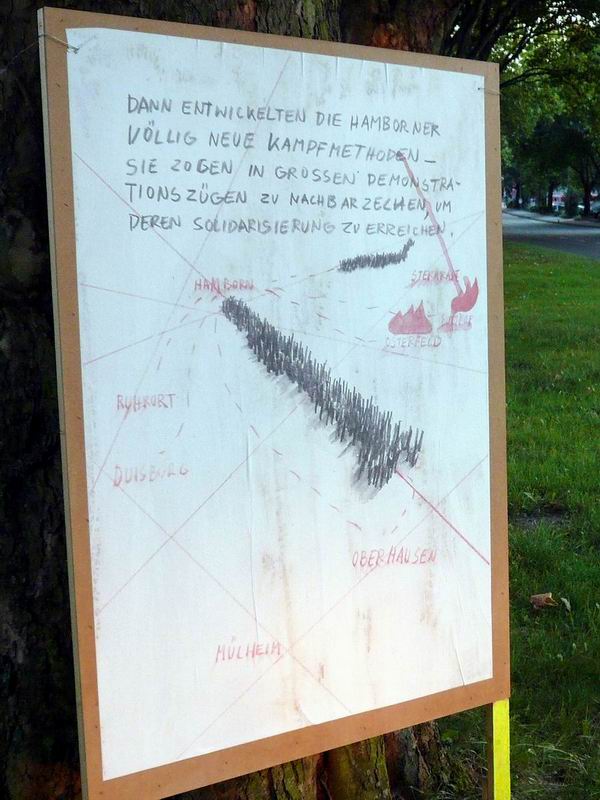 DANN ENTWICKELTEN DIE HAMBORNER
VÖLLIG NEUE KAMPFMETHODEN –
SIE ZOGEN IN GROSSEN DEMONSTRA-
TIONSZÜGEN ZU NACHBARZECHEN UM
DEREN SOLIDARISIERUNG ZU ERREICHEN.
HAMBORN
STERKRADE
OSTERFELD
RUHRORT
DUISBURG
OBERHAUSEN
MÜLHEIM